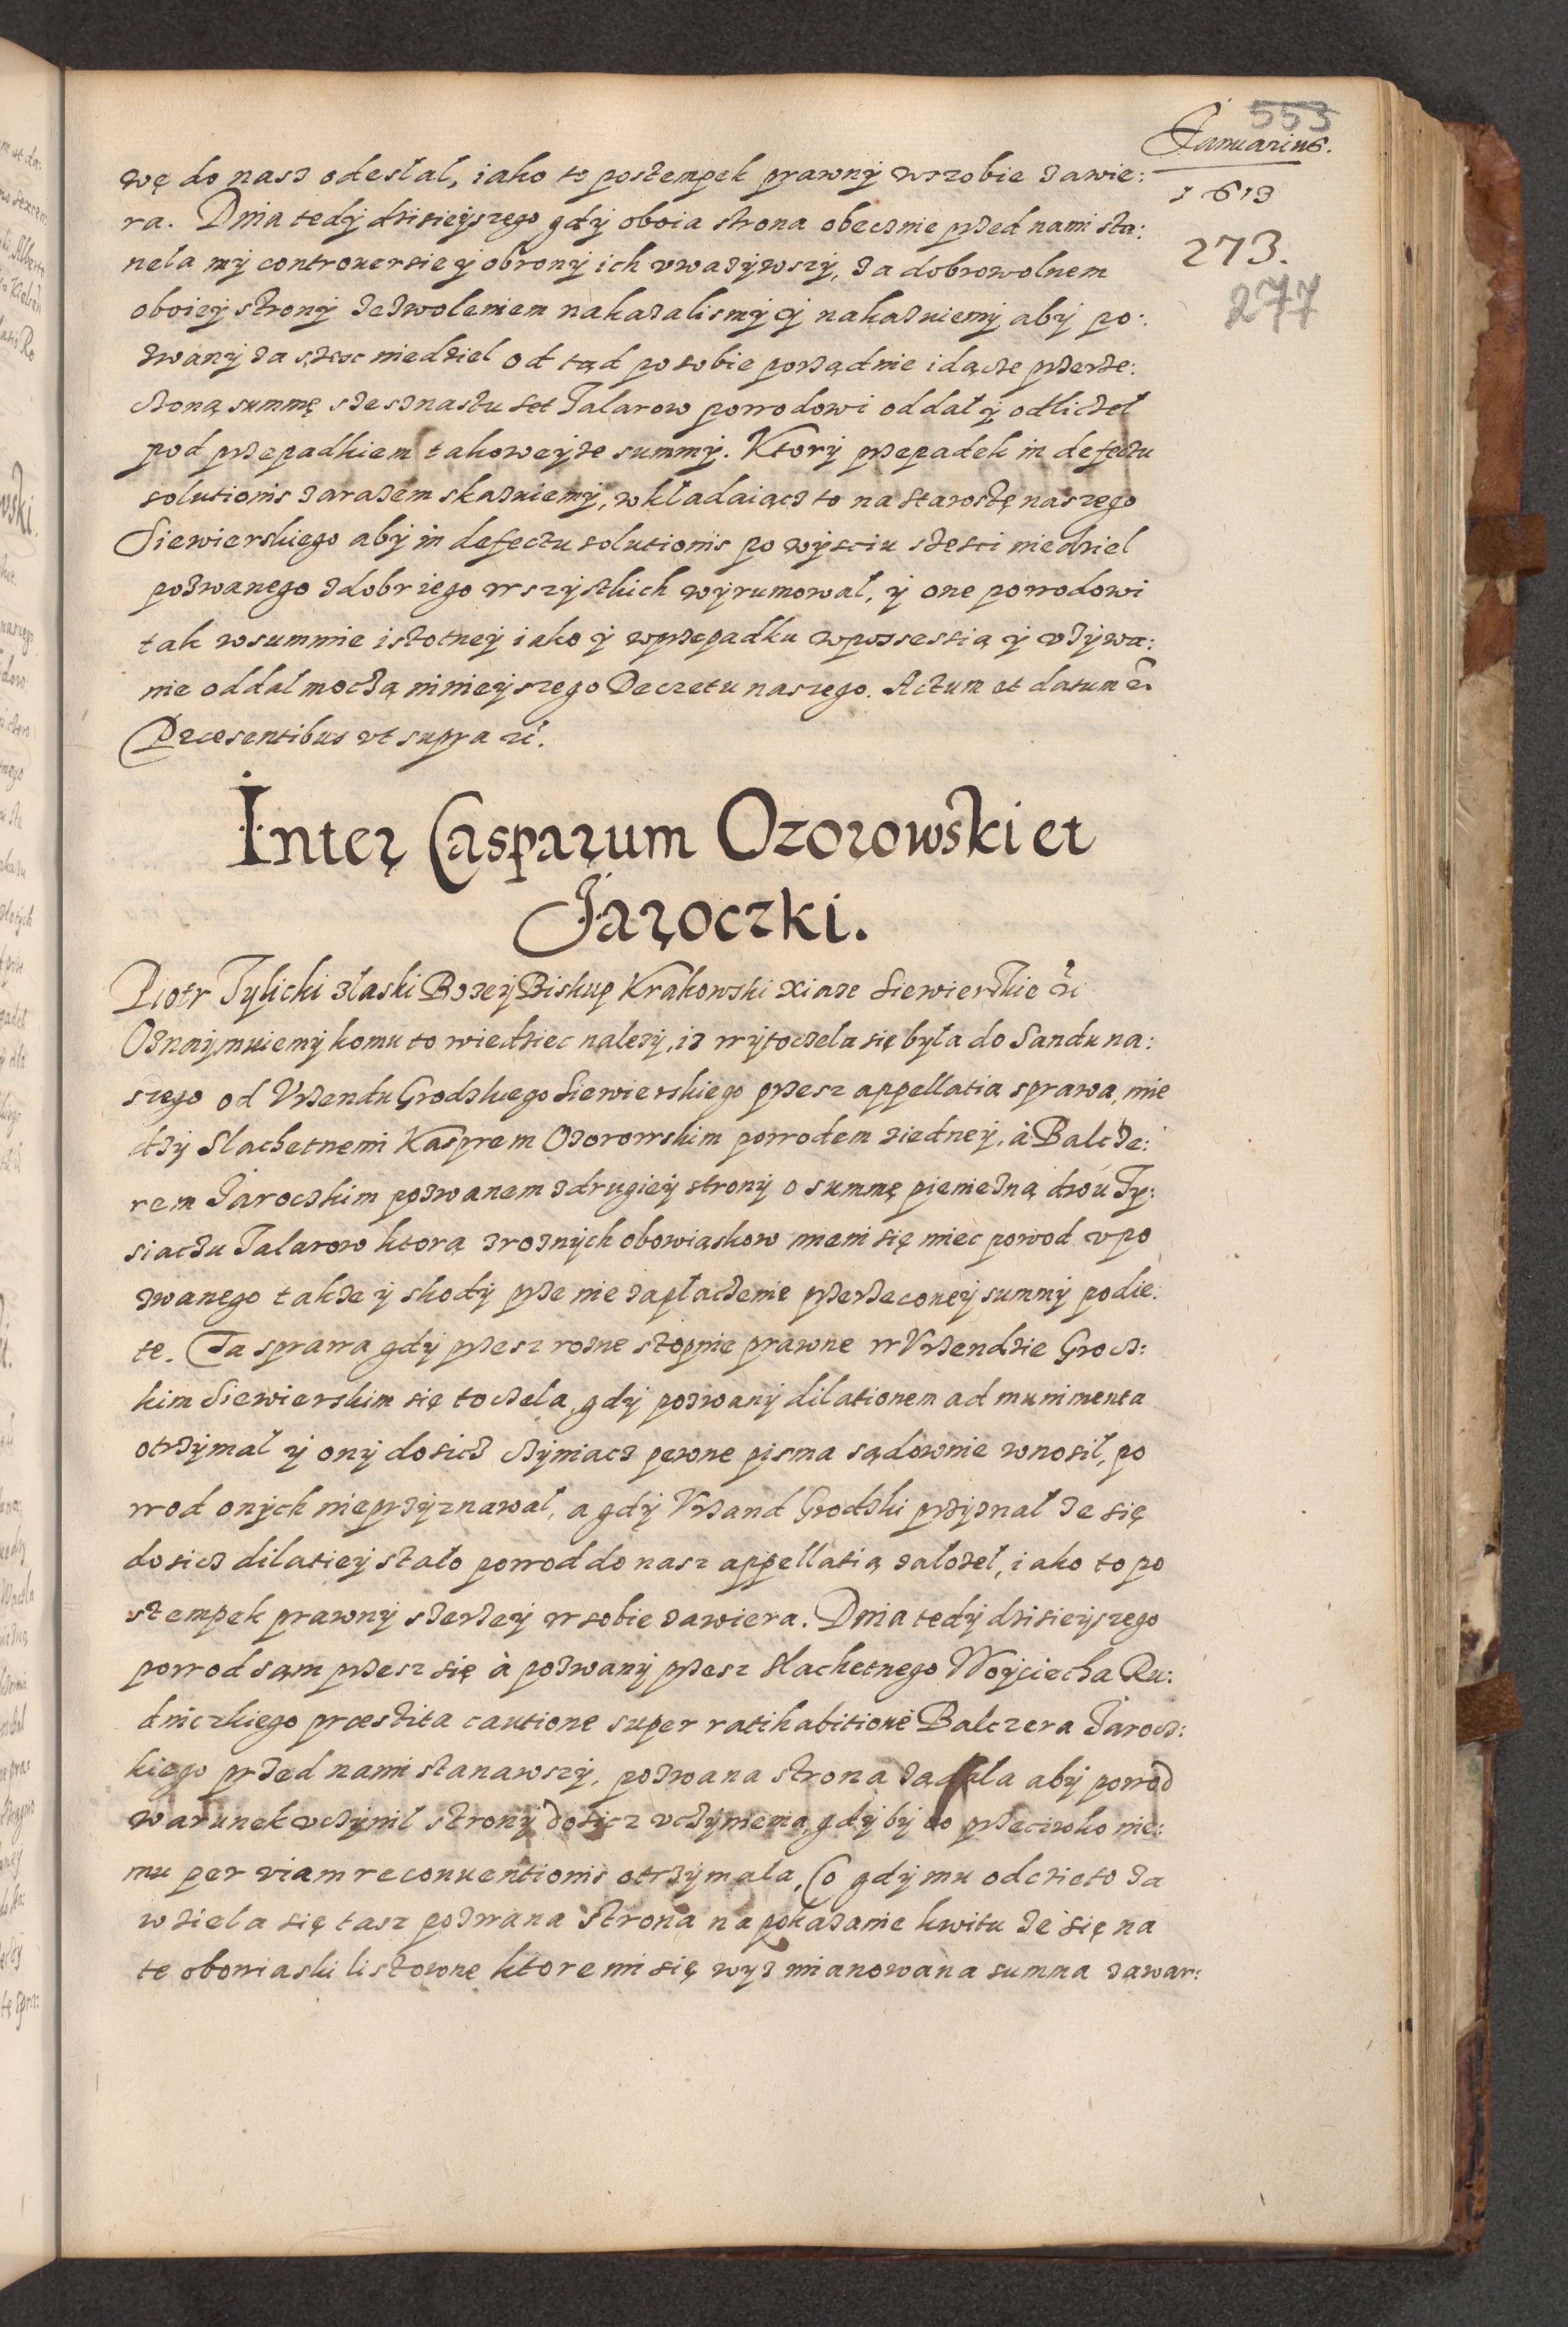 553
Januarius.
1613
273.
277
wę do nasz odesłal, iako to postempek prawny wszobie zawie:
ra. Dnia tedy dzisieyszego gdy oboia strona obecznie przed nami sta:
nela my controuersie y obrony ich vwazywszy, za dobrowolnem
oboiey strony zezwoleniem nakazalismy y nakazuiemy aby po:
zwany za szesc niedziel od tąd po sobie porządnie idącze przerze:
czoną summę szesznastu set Talarow powodowi oddał y odliczel
pod przepadkiem takoweyze summy. Ktory przepadek in defectu
solutionis zarazem skazuiemy, wkładaiącz to na starostę naszego
Siewierskiego aby in defectu solutionis po wysciu szesci niedziel
pozwanego zdobr iego wszystkich wyrumował, y one powodowi
tak wsummie istotney iako y wprzepadku wpossessią y vzywa:
nie oddał moczą ninieyszego Decretu naszego. Actum et datum &c
Præsentibus vt supra &c.
Inter Casparum Ozorowski et
Jaroczki.
Piotr Tylicki złaski Bozey Biskup Krakowski xiaze Siewierskie &c
Oznaymuiemy komu to wiedziec nalezy, iz wytoczela się była do Sandu na:
szego od Vrzendu Grodzkiego Siewierskiego przesz appellatią sprawa, mie
dzy Slachetnemi Kasprem Ozorowskim powodem ziedney, à Balcze:
rem Jaroczkim pozwanem zdrugiey strony o summę pieniezną dwu Ty:
siaczu Talarow ktorą zroznych obowiąskow mieni się miec powod vpo
zwanego takze y skody prze nie zapłaczenie przerzeconey summy podie:
te. Ta sprawa gdy przesz rozne stopnie prawne w Vrzendzie Grocz:
kim Siewierskim się toczela, gdy pozwany dilationem ad munimenta
otrzymał y ony dosicz czyniacz pewne pisma sądownie wnosił, po
wod onych nieprzyznawał, a gdy Vrzand Grodzki przyznał ze się
dosicz dilatiey stało powod do nasz appellatią załozeł, iako to po
stempek prawny szerzey wsobie zawiera. Dnia tedy dzisieyszego
powod sąm przesz się à pozwany przesz slachetnego Woyciecha Ru:
dniczkiego præstita cautione super ratihabitione Balczera Jarocz:
kiego przed nami stanawszy, pozwana strona ządala aby powod
warunek vczynił strony dosicz vczynienia, gdy by co przeciwko nie:
mu per viam reconuentionis otrzymala, Co gdy mu odcieto za
wziela się tasz pozwana strona na pokazanie kwitu ze się na
te obowiaski listowne ktoremi się wyz mianowana summa zawar: